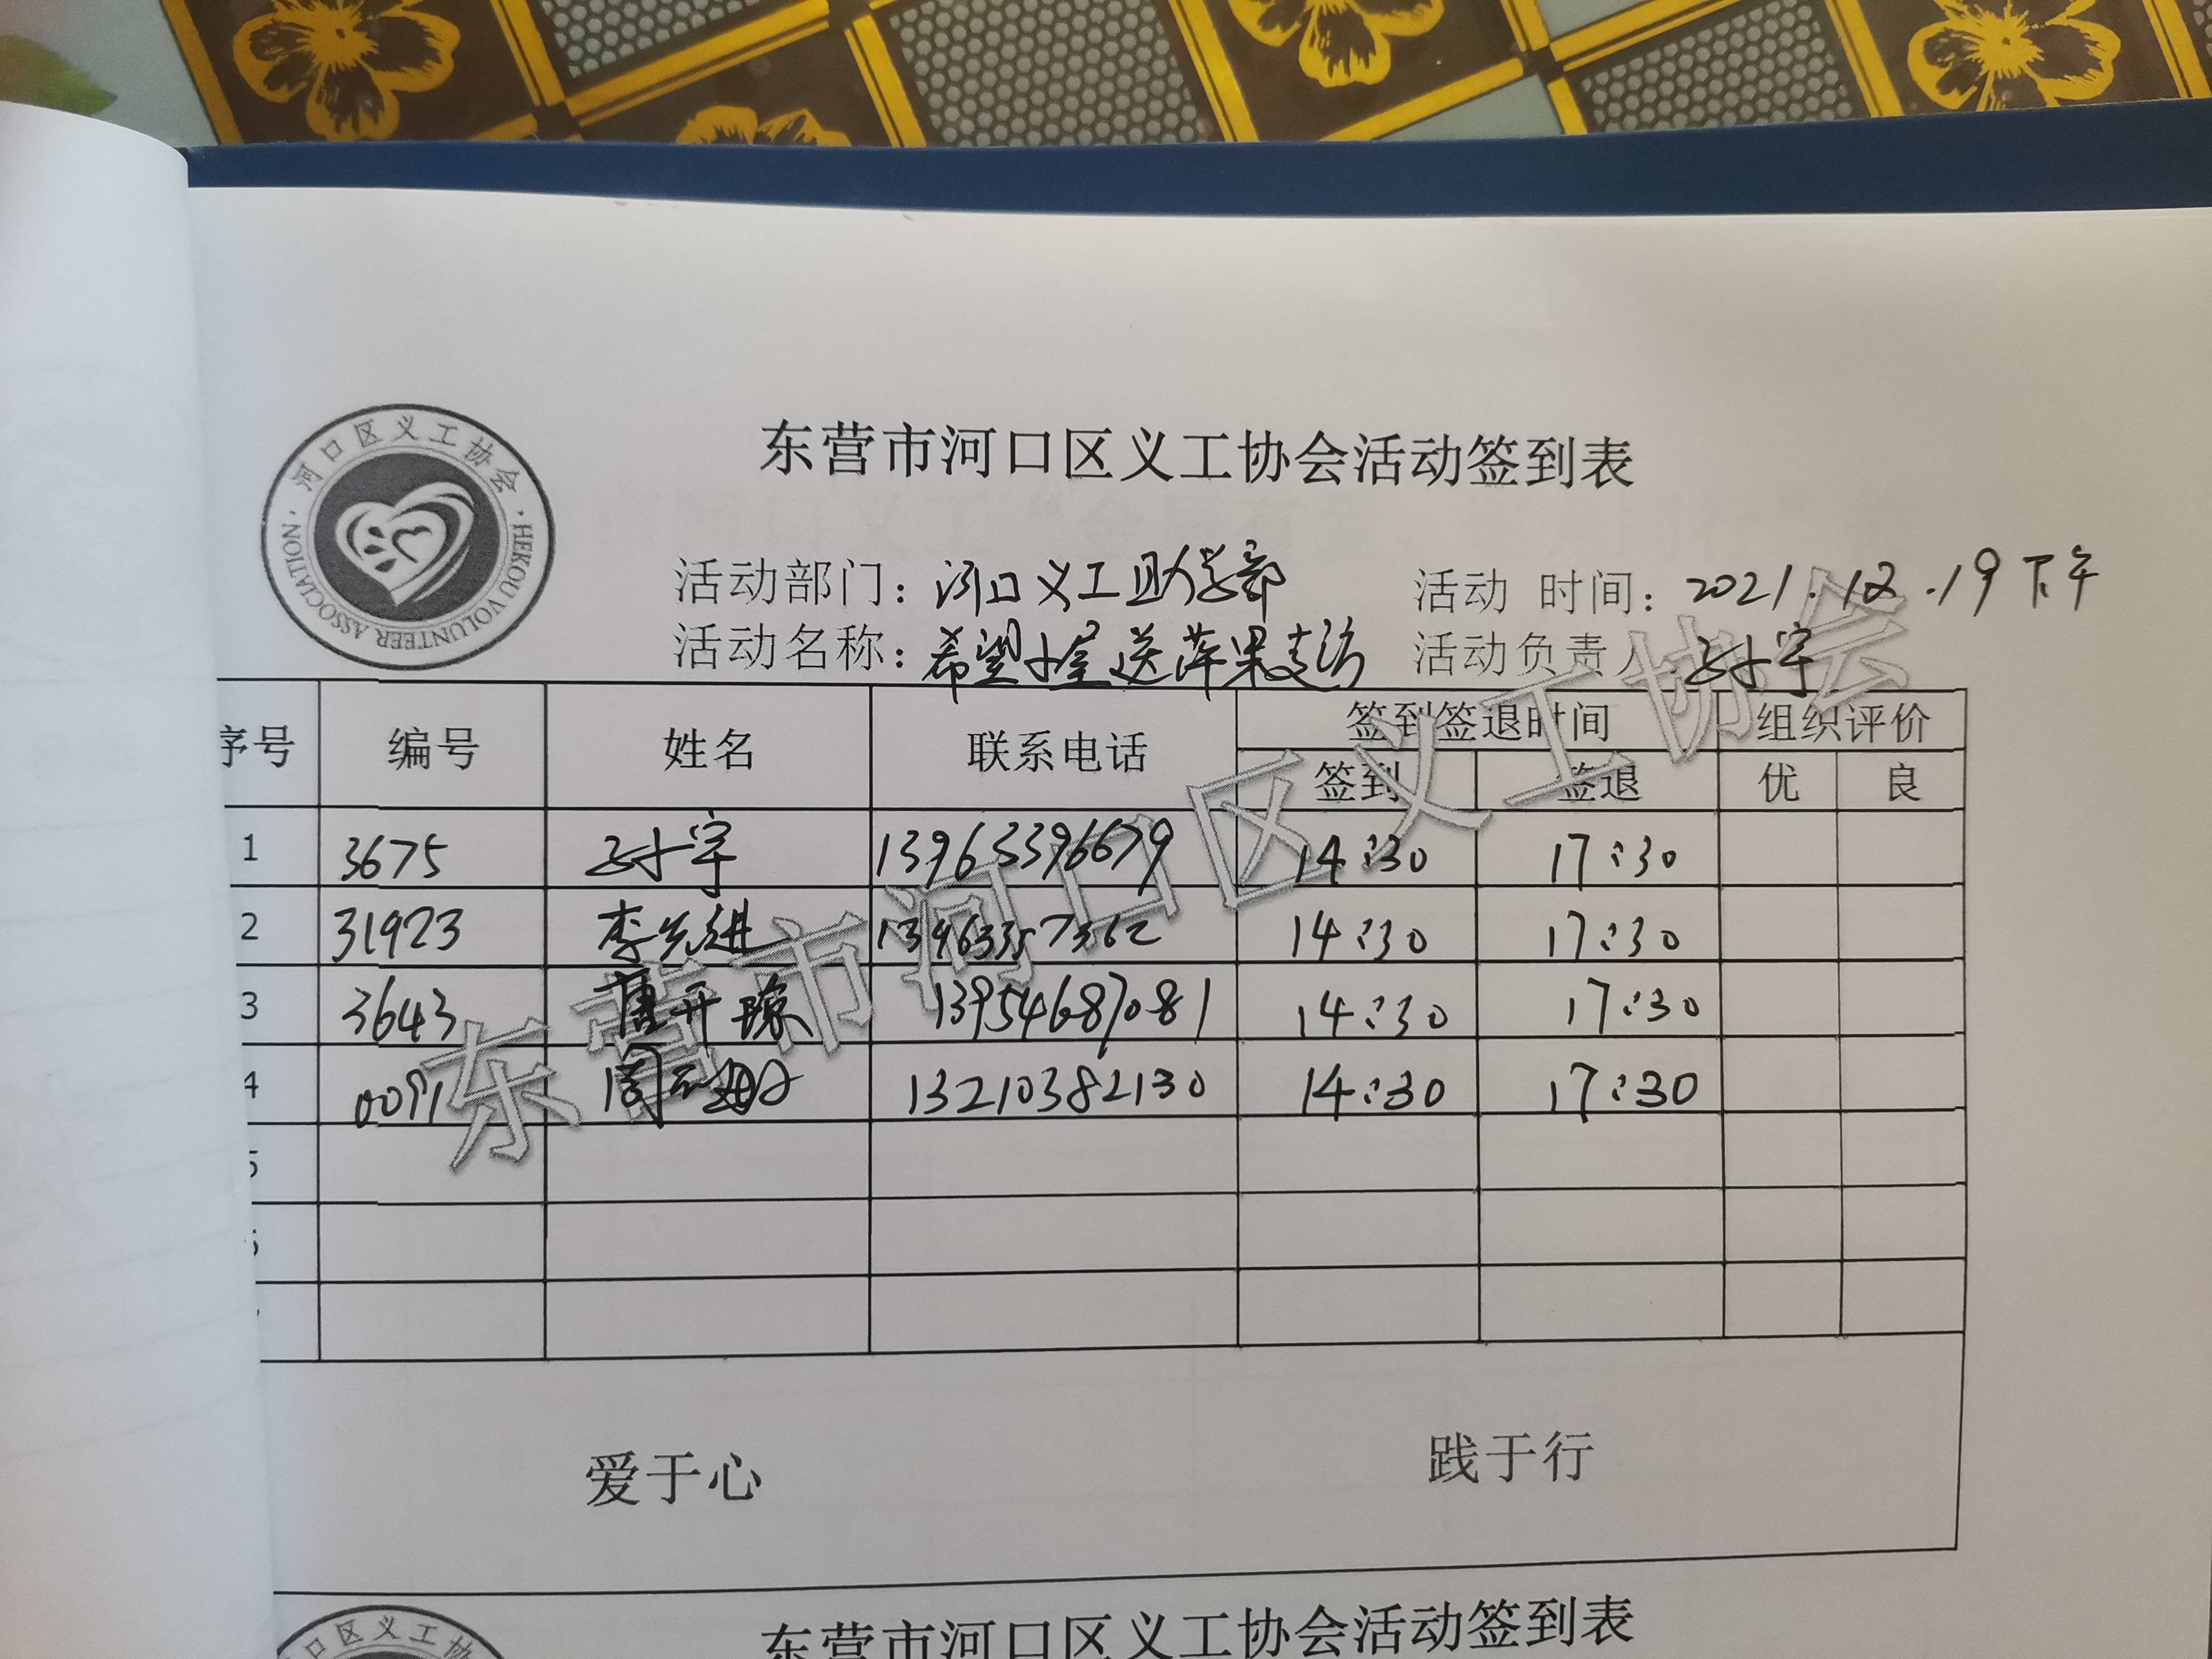 河口区义工协会
HEKOU VOLUNTEER ASSOCIATION
东营市河口区义工协会活动签到表
活动部门：河口义工助学部 活动 时间：2021.12.19下午
活动名称：希望小屋送苹果走访 活动负责人
序号 编号 姓名 联系电话 签到签退时间 组织评价
签到 签退 优 良
1 3675 13963396679 14:30 17:30
2 31923 李先进 14:30 17:30
3 3643 13954687081 14:30 17:30
4 0091 周 13210382130 14:30 17:30
5
6
东营市河口区义工协会
爱于心 践于行
东营市河口区义工协会活动签到表
口区义工协